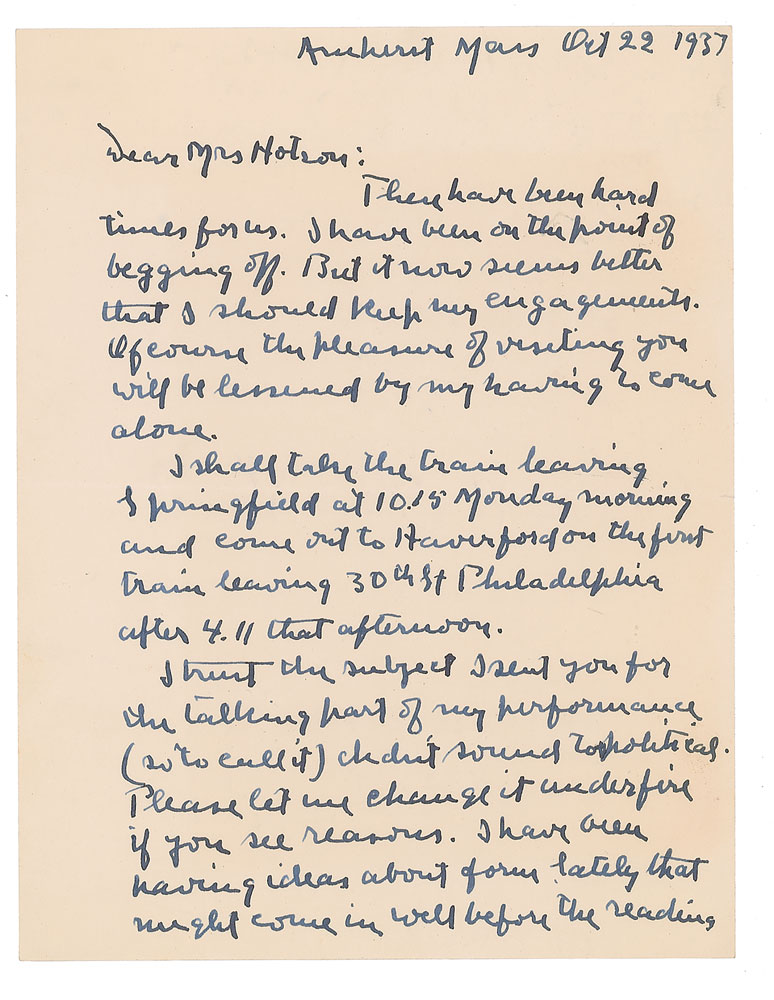 Amherst Mass Oct 22 1937
Dear Mrs Hotson:
These have been hard
times for us. I have been on the point of
begging off. But it now seems better
that I should keep my engagements.
Of course the pleasure of visiting you
will be lessened by my having to come
alone.
I shall take the train leaving
Springfield at 10.15 Monday morning
and come out to Haverford on the first
train leaving 30th St Philadelphia
after 4.11 that afternoon.
I trust the subject I sent you for
the talking part of my performance
(so to call it) didn't sound too political.
Please let me change it under fire
if you see reasons. I have been
having ideas about form lately that
might come in well before the reading